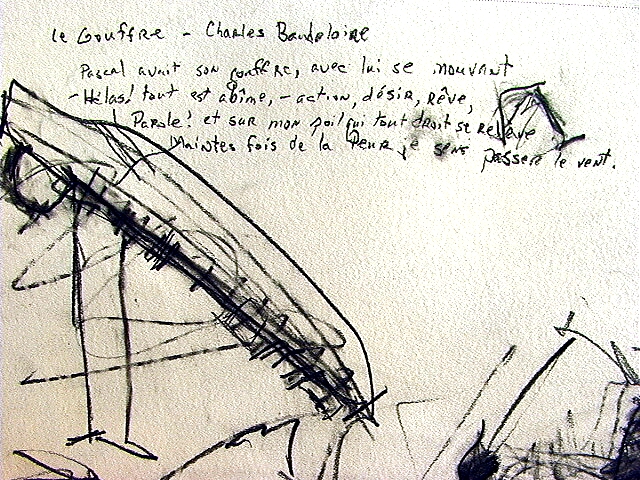 Le Gouffre - Charles Baudelaire
Pascal avait son gouffre, avec lui se mouvant
- Hélas! tout est abîme, - action, désir, rêve,
Parole! et sur mon poil qui tout droit se relève
Maintes fois de la Peur je sens passer le vent.